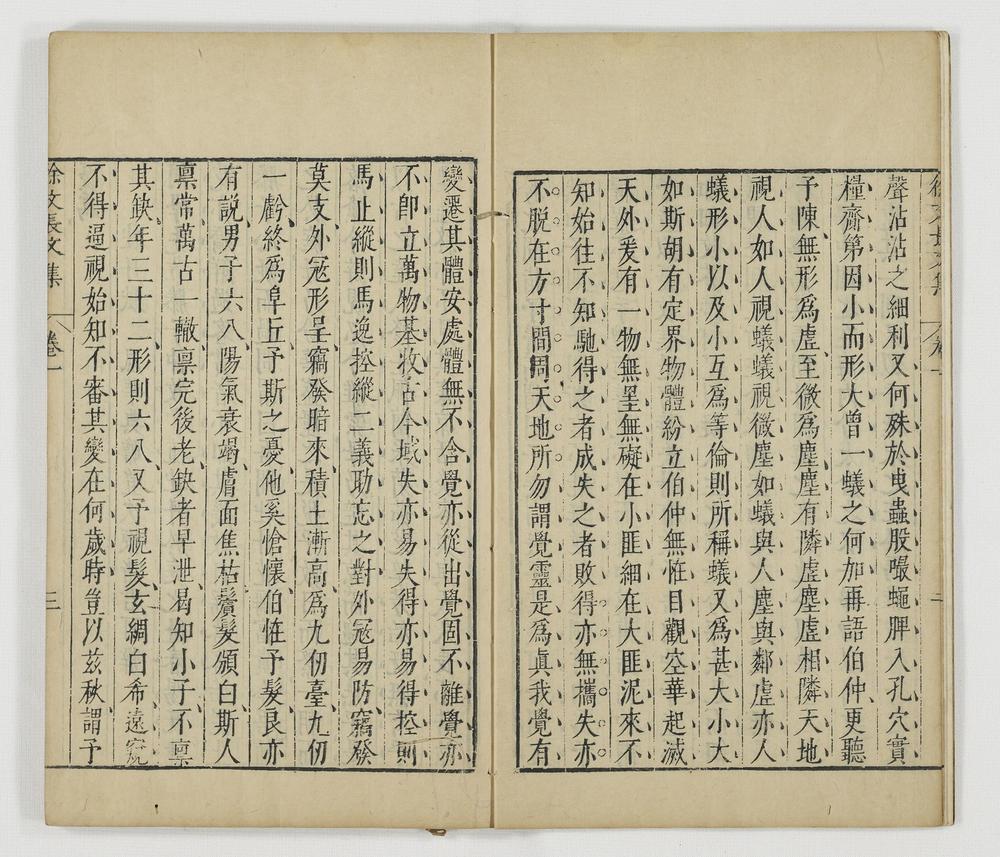 聲沾沾之細利又何殊於曵蟲股嘬蠅脾入孔穴實
糧齋第因小而形大曾一蟻之何加再語伯仲更聽
予陳無形爲虛至微爲塵塵有隣虛塵虛相隣天地
視人如人視蟻蟻視微塵如蟻與人塵與鄰虛亦人
蟻形小以及小互爲等倫則所稱蟻又爲甚大小大
如斯胡有定界物體紛立伯仲無恠目觀空華起滅
天外爰有一物無罣無礙在小匪細在大匪泥來不
知始往不知馳得之者成失之者敗得亦無攜失亦
不脱在方寸間周天地所勿謂覺靈是爲眞我覺有
變遷其體安處體無不含覺亦從出覺固不離覺亦
不卽立萬物基收古今域失亦易失得亦易得控則
馬止縱則馬逸控縱二義助忘之對外冦易防竊發
莫支外冦形呈竊發暗來積土漸高爲九仞臺九仞
一虧終爲阜丘予斯之憂他奚愴懷伯恠予髮良亦
有説男子六八陽氣衰竭膚面焦枯鬢髮頒白斯人
禀常萬古一轍禀完後老缺者早泄曷知小子不禀
其缺年三十二形則六八又予視髮玄綢白希遠
不得逼視始知不審其變在何歲時豈以兹秋謂予
徐文長文集
卷一
三